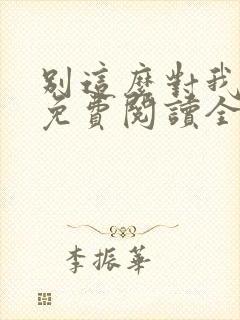 別這麼對我
免費閱讀全
李振華